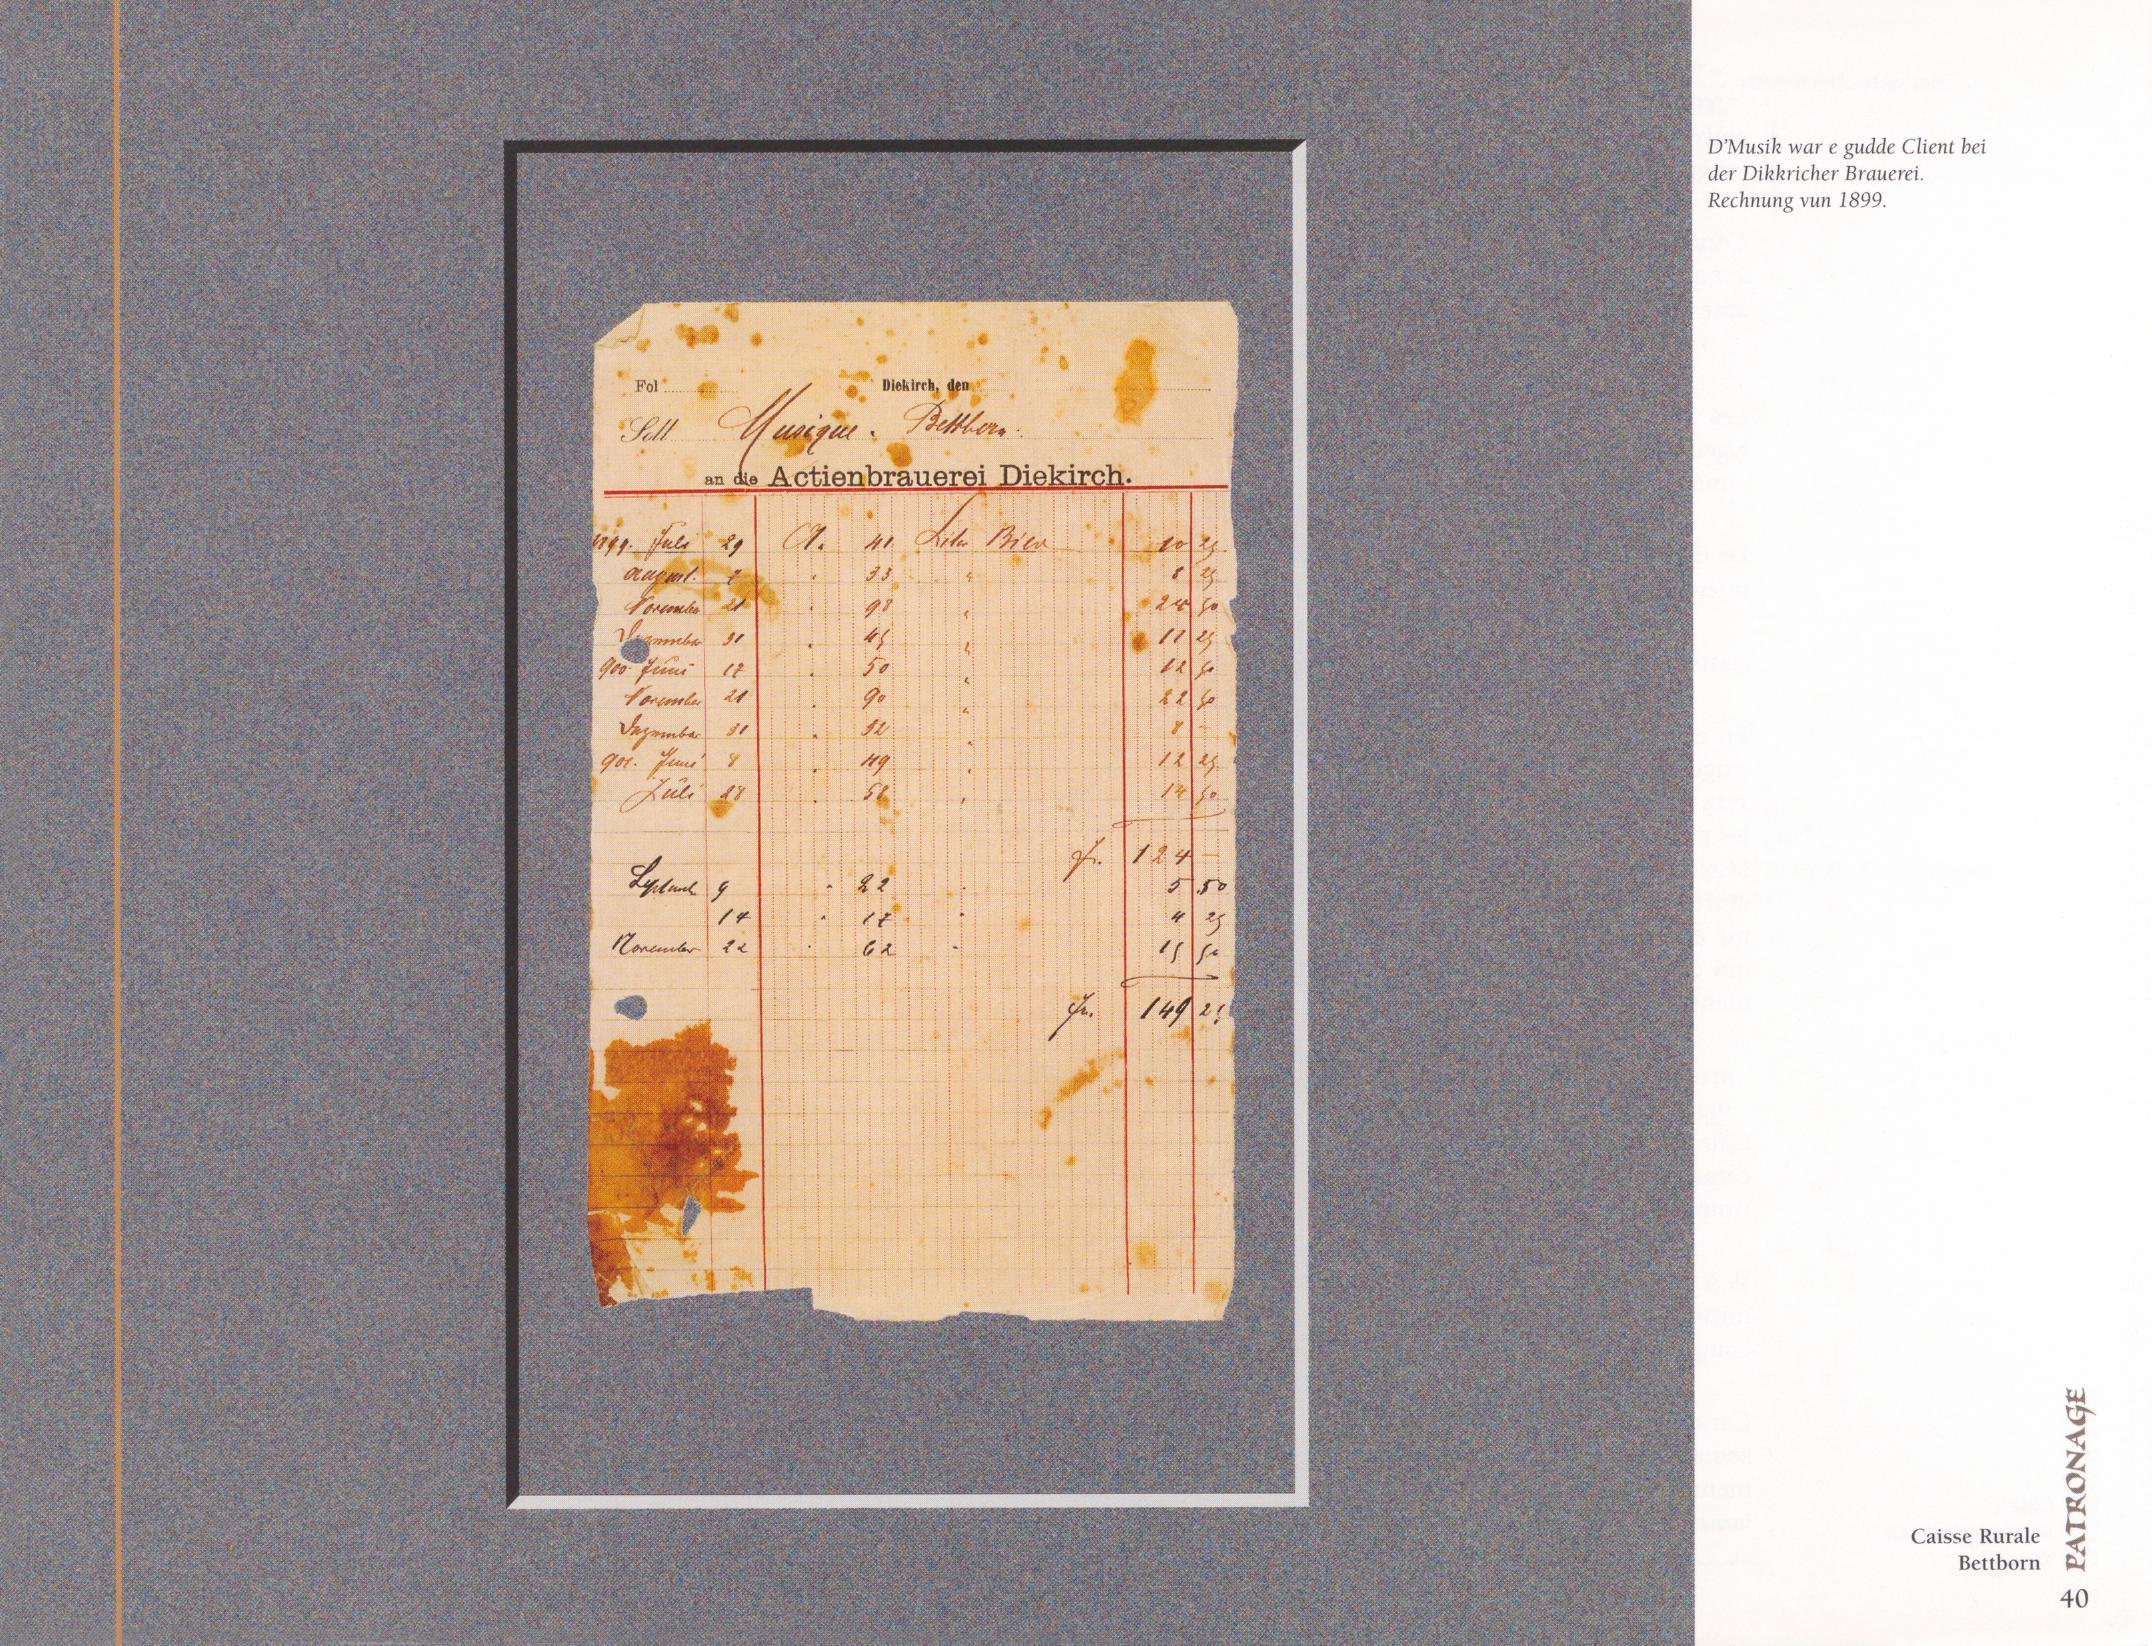 D'Musik war e gudde Client bei
der Dikkricher Brauerei.
Rechnung vun 1899.
Fol
Diekirch, den
Soll Musique. Bettborn.
an die Actienbrauerei Diekirch.
1899. Juli 29 41 Liter Bier 10 25
August. 7 " 33 " 8 25
November 21 " 98 " 24 50
Dezember 31 " 45 " 11 25
900 Juni 17 " 50 " 12 50
November 21 " 90 " 22 50
Dezember 31 " 32 " 8 -
901. Juni 8 " 49 " 12 25
Juli 28 " 58 " 14 50
Fr. 124 -
Septemb 9 " 22 " 5 50
14 " 17 " 4 25
November 22 " 62 " 15 50
Fr. 149 25
Caisse Rurale
Bettborn
PATRONAGE
40